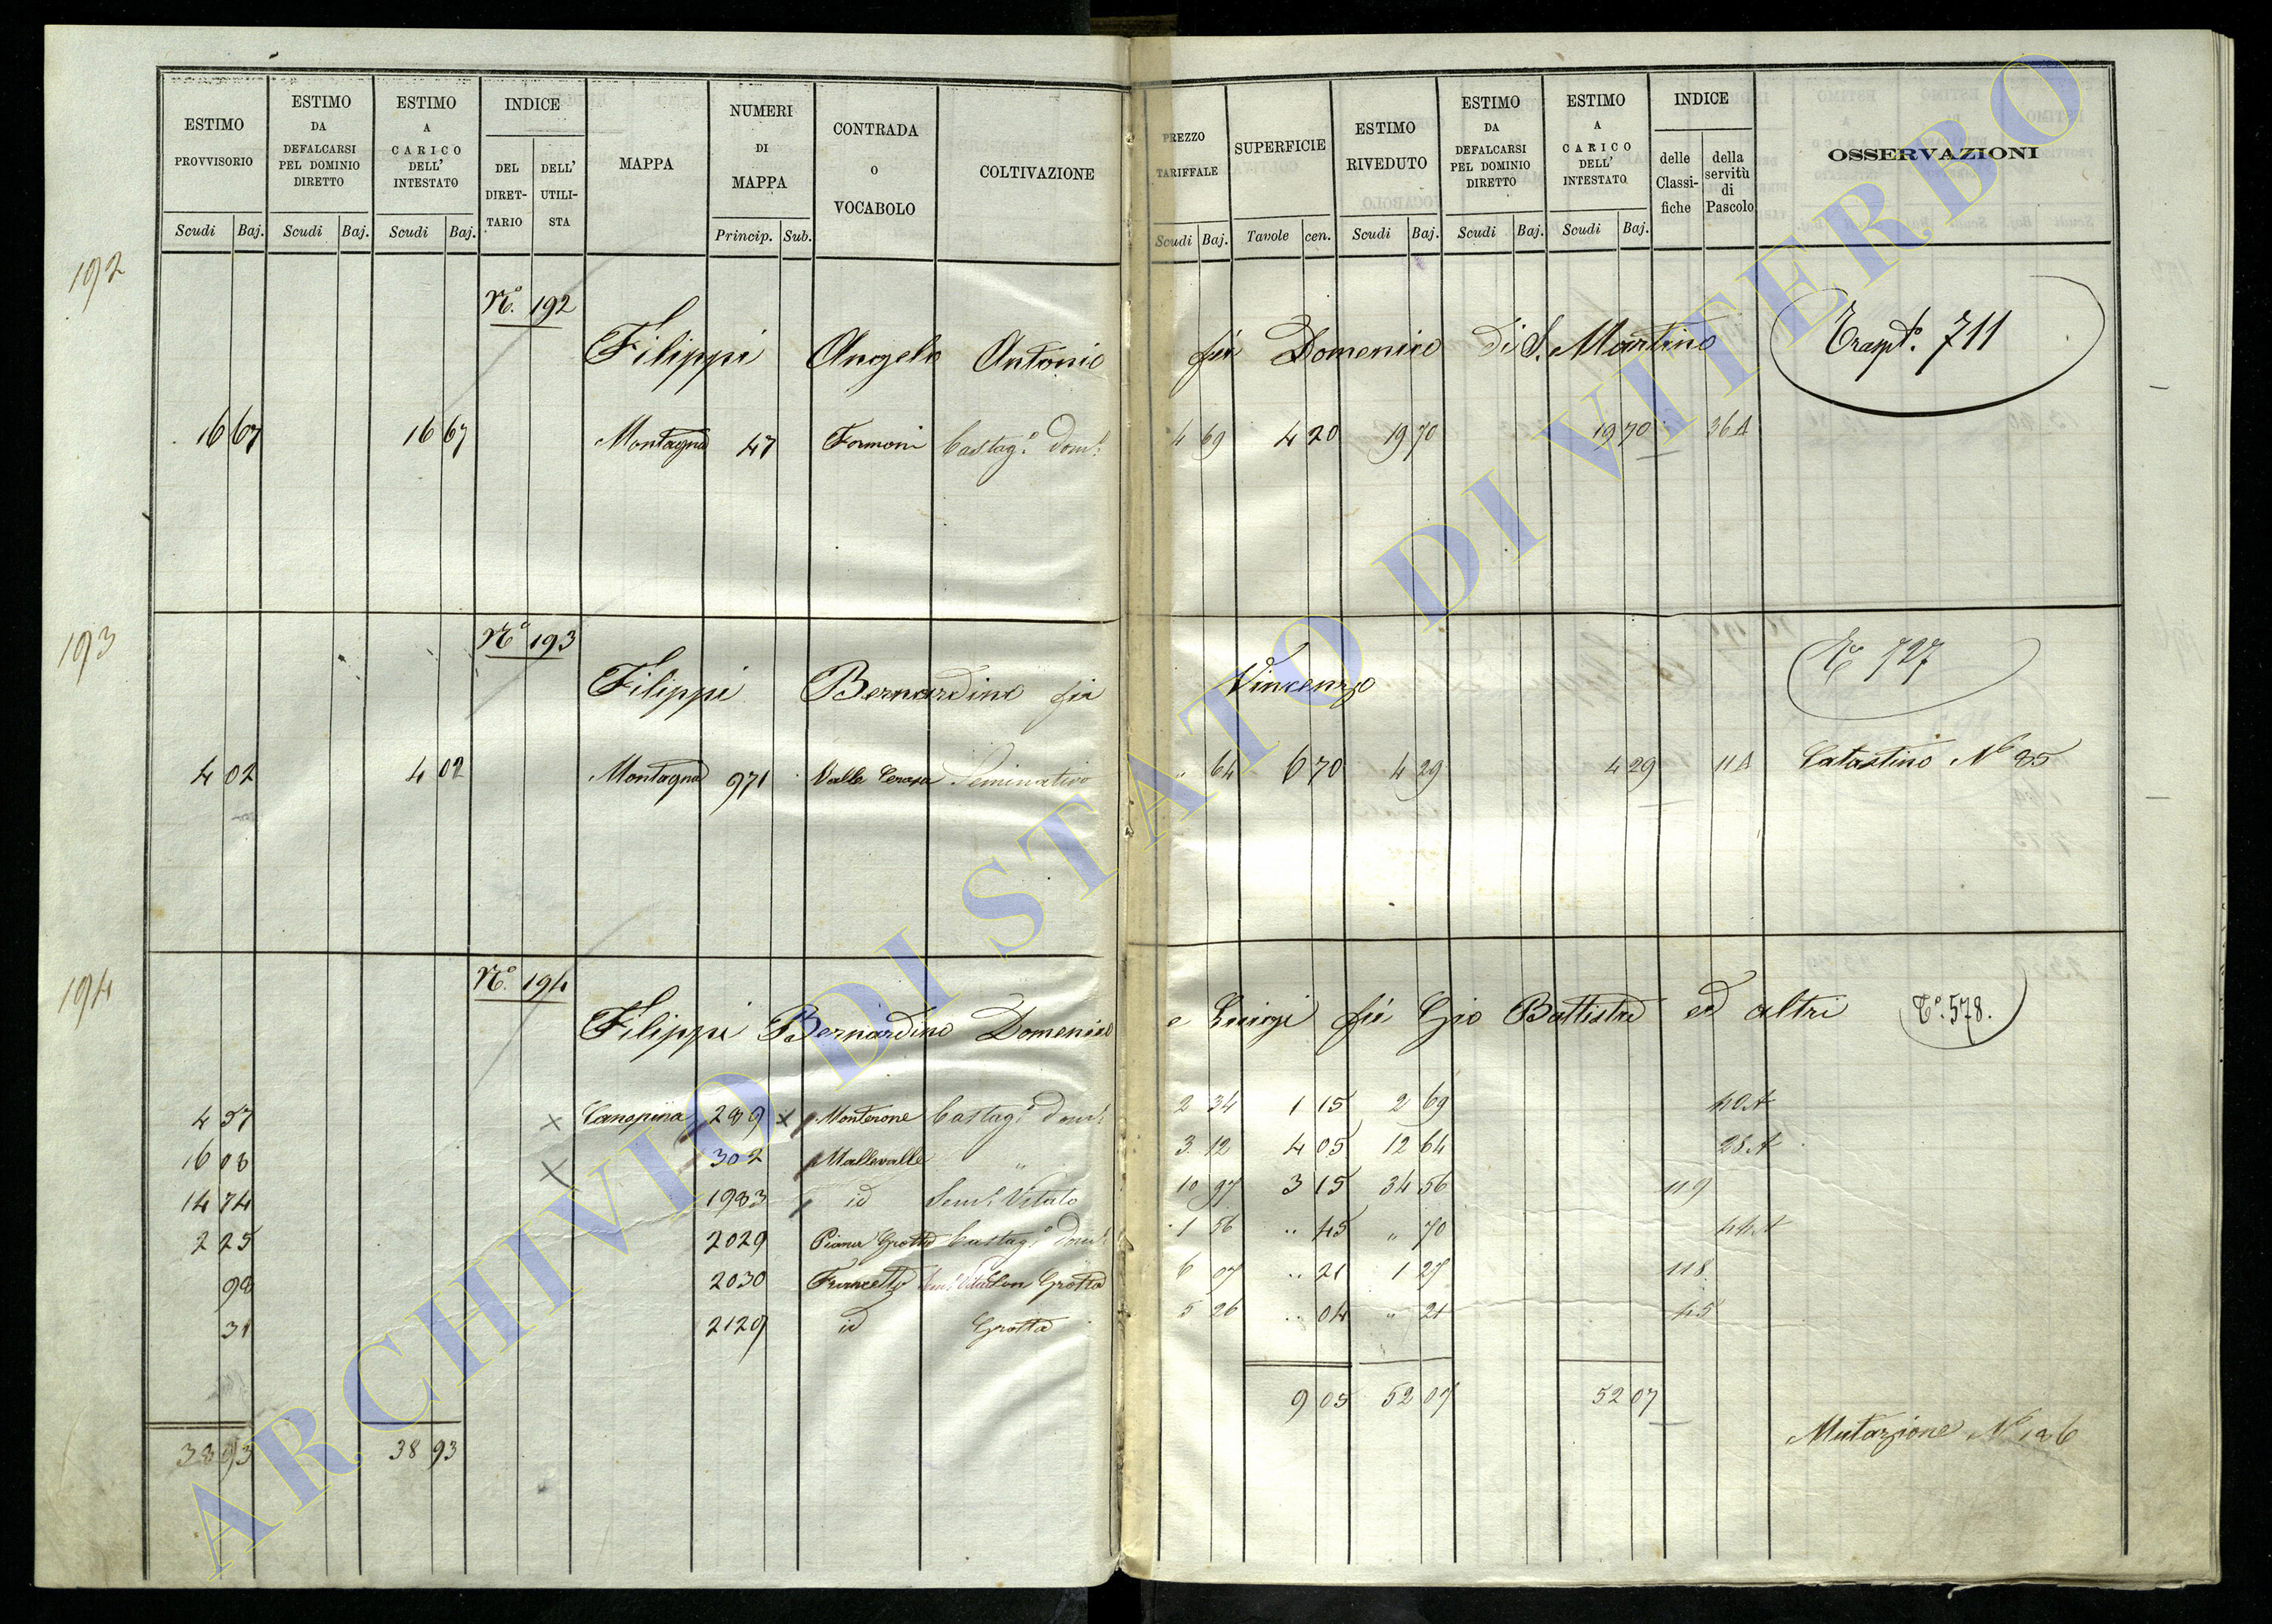 ESTIMO PROVVISORIO ESTIMO DA DEFALCARSI PEL DOMINIO DIRETTO ESTIMO A CARICO DELL' INTESTATO INDICE DEL DIRET-TARIO DELL' UTILI-STA MAPPA NUMERI DI MAPPA CONTRADA O VOCABOLO COLTIVAZIONE PREZZO TARIFFALE SUPERFICIE ESTIMO RIVEDUTO ESTIMO DA DEFALCARSI PEL DOMINIO DIRETTO ESTIMO A CARICO DELL' INTESTATO INDICE delle Classi-fiche della servitù di Pascolo OSSERVAZIONI
Scudi Baj. Scudi Baj. Scudi Baj. Princip. Sub. Scudi Baj. Tavole cen. Scudi Baj. Scudi Baj. Scudi Baj.
192 N.º 192
Filippi Angelo Antonio fu Domenico di S. Martino Trasp.º 711
16 67 16 67 Montagna 47 Formoni Castag.º dom.º 4 69 4 20 19 70 19 70 36 A
193 Nº 193
Filippi Bernardino fu Vincenzo 727
4 02 4 02 Montagna 971 Valle Cerasa Seminativo " 64 6 70 4 29 4 29 11 A Catastino Nº 85
194 Nº 194
Filippi Bernardino Domenico e Luigi fu Gio Battista ed altri Tº 578.
4 57 × Canepina 289 × Monterone Castag.º dom.º 2 34 1 15 2 69 40 A
16 08 × 302 Mallevalle " 3 12 4 05 12 64 28 A
14 74 1983 id Sem.º Vitato 10 97 3 15 34 56 119
2 25 2029 Piana Grotta Castag.º dom.º 1 56 " 45 " 70 44 A
98 2030 Grotta 6 07 " 21 1 27 118
31 2129 id Grotta 5 26 " 04 " 21 45
9 05 52 07 52 07
38 93 38 93 Mutazione Nº
ARCHIVIO DI STATO DI VITERBO